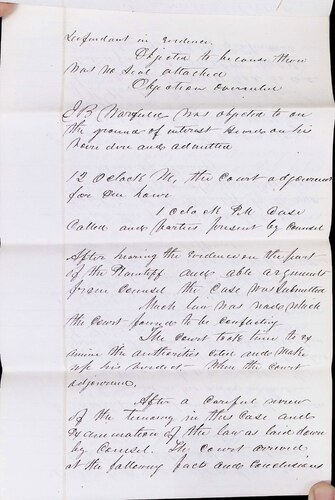 Defendant in evidence
Objected to because there
was no seal attached
Objection overruled
J B Warfield was objected to on
the ground of interest sworn on his
voire dire and admitted
12 Oclock M, the Court adjourned
for one hour
1 Oclock P.M Case
Called and parties present by Counsel
After hearing the evidence on the part
of the Plaintiff and able argument
from counsel the Case was Submitted
Much law was read which
the Court found to be conflicting
The Court took time to ex
amine the authorities cited and make
up his verdict When the court
adjourned,
After a careful review
of the testimony in this Case and
Examination of the law as laid down
by Counsel. The Court arrived
at the following facts and conclusions